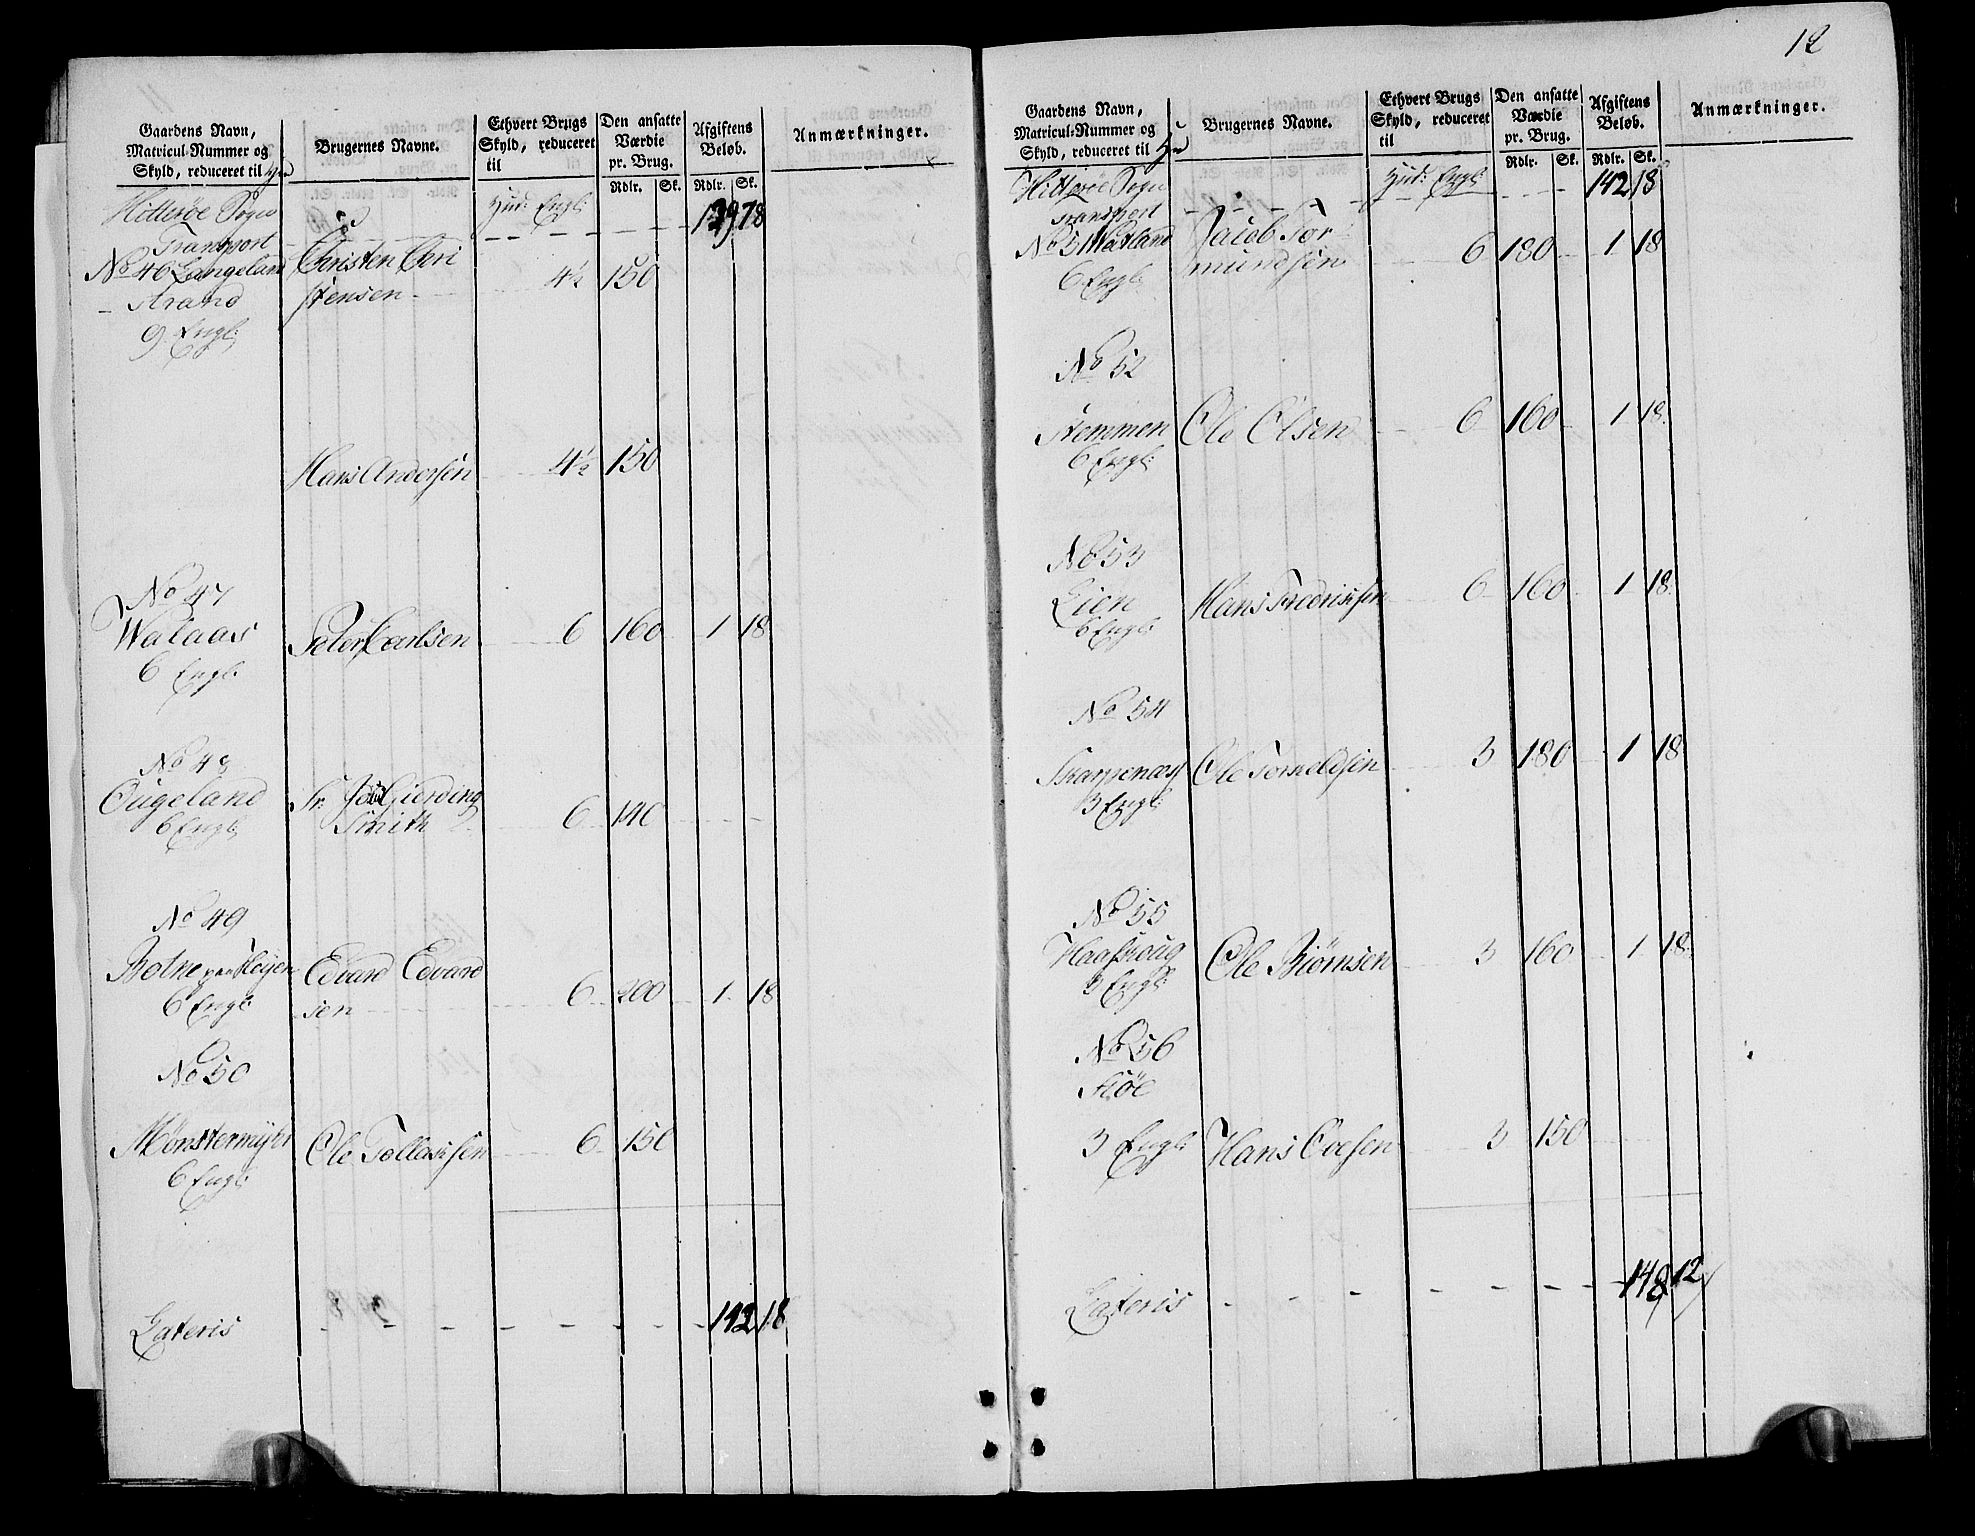 Gaardens Navn,
Matricul-Nummer og
Skyld, reduceret til
Brugernes Navne.
Ethvert Brugs
Skyld, reduceret
til
Den ansatte
Værdie
pr. Brug.
Rdlr. Sk.
Afgiftens
Beløb.
Rdlr. Sk.
Anmærkninger.
Hitterøe Sogn
Transport 139 78
No 46 Langeland
Strand
9 Engl:
Christen Chri
stensen 4½ 150
Hans Andersen 4½ 150
No 47
Walaas
6 Engl:
Peter Carlsen 6 160 1 18
No 48
Ougeland
6 Engl:
Sr. Gierding
Smith 6 140
No 49
Botne paa
6 Engl:
Edvard Edvard
sen 6 200 1 18
No 50
Mønstermyhr
6 Engl:
Ole Tollaksen 6 150
Lateris 142 18
12
Gaardens Navn,
Matricul-Nummer og
Skyld, reduceret til
Brugernes Navne.
Ethvert Brugs
Skyld, reduceret
til
Den ansatte
Værdie
pr. Brug.
Rdlr. Sk.
Afgiftens
Beløb.
Rdlr. Sk.
Anmærkninger.
Hitterøe Sogn
Transport 142 18
No 51 Watland
6 Engl:
Jacob Tor
mundsen 6 180 1 18
No 52
Stemmen
6 Engl:
Ole Olsen 6 160 1 18
No 53
Lien
6 Engl:
Hans Fredriksen 6 160 1 18
No 54
Skarpenæs
3 Engl:
Ole Torkeldsen 3 180 1 18
No 55
Haaskoug
3 Engl:
Ole Biørnsen 3 160 1 18
No 56
3 Engl:
Hans Ovesen 3 150
Lateris 148 12